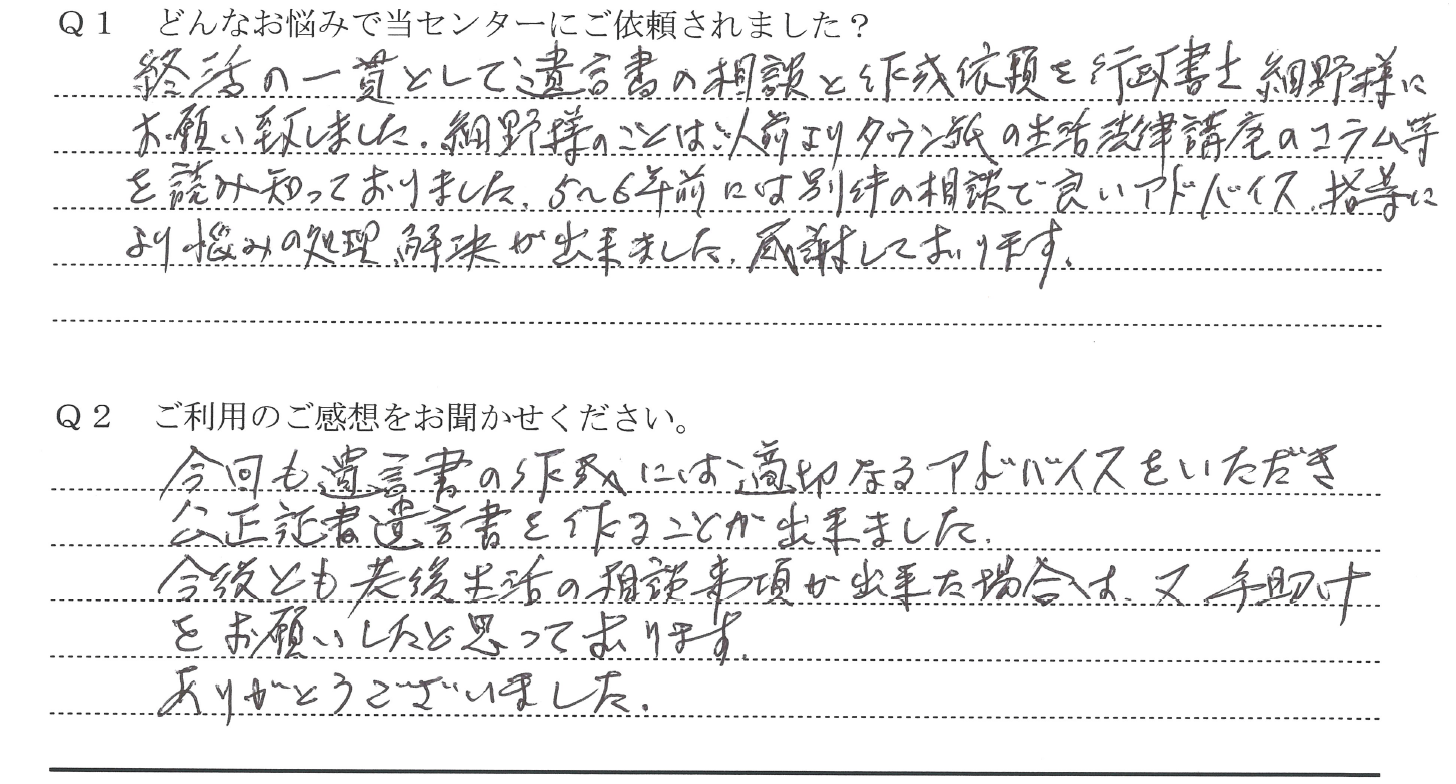 Q1 どんなお悩みで当センターにご依頼されました?
終活の一貫として遺言書の相談と作成依頼を行政書士細野様に
お願い致しました。細野様のことはご人前よりタウン紙の生活法律講座のコラム等
を読み知っておりました。5~6年前には別件の相談で良いアドバイス、指導に
より悩みの処理、解決が出来ました。感謝しております。
Q2 ご利用のご感想をお聞かせください。
今回も遺言書の作成には適切なるアドバイスをいただき
公正証書遺言書を作ることが出来ました。
今後とも老後生活の相談事項が出来た場合は、又、手助け
をお願いしたと思っております。
ありがとうございました。